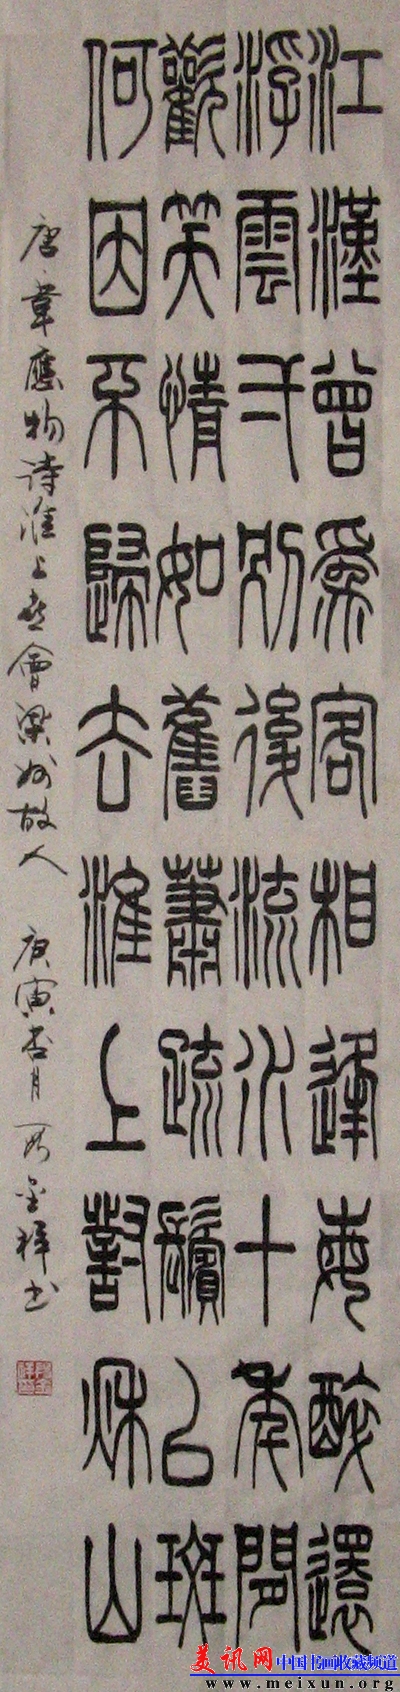 江漢曾為客相逢每醉還
浮雲一別後流水十年間
歡笑情如舊蕭疏鬢已斑
何因不歸去淮上對秋山
唐韋應物詩淮上喜會梁州故人 庚寅杏月 金祥书
美讯网中国书画收藏频道
www.meixun.org